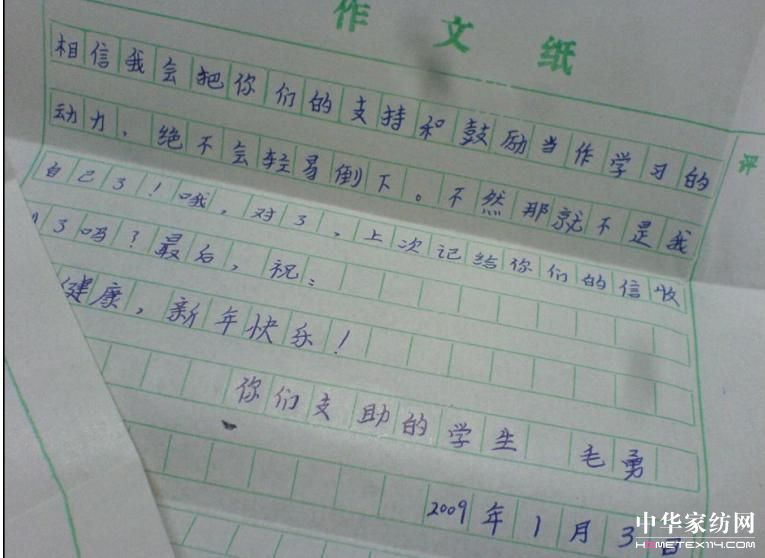 作文纸
相信我会把你们的支持和鼓励当作学习的
动力，绝不会轻易倒下。不然那就不是我
自己了！哦，对了，上次记给你们的信收
了吗？最后，祝：
健康，新年快乐！
你们支助的学生 毛勇
2009年1月3日
评
中华家纺网
HOMETEX114.COM